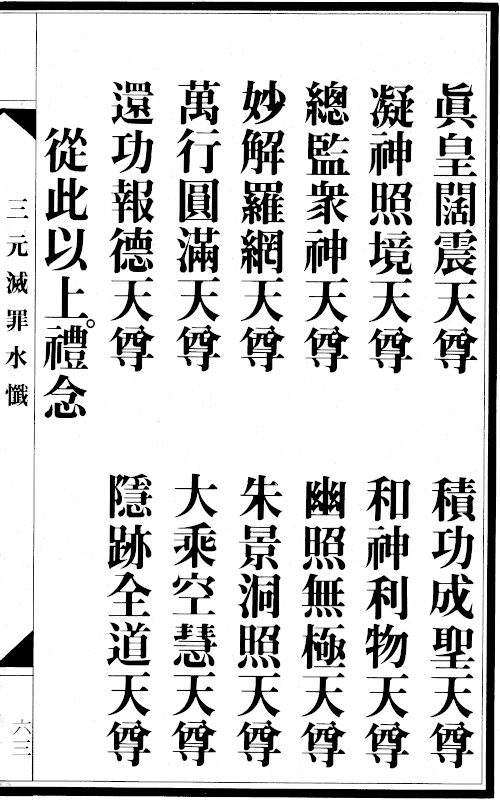 眞皇闊震天尊　積功成聖天尊
凝神照境天尊　和神利物天尊
總監衆神天尊　幽照無極天尊
妙解羅網天尊　朱景洞照天尊
萬行圓滿天尊　大乘空慧天尊
還功報德天尊　隱跡全道天尊
從此以上。禮念
三元滅罪水懺
六三